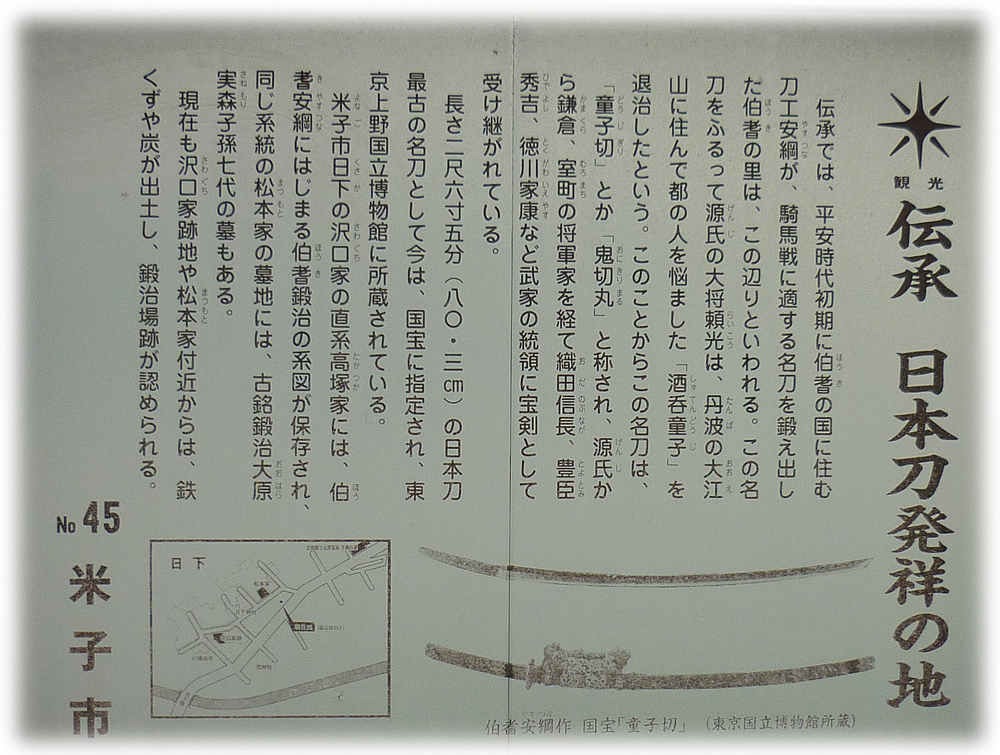 観光
伝承 日本刀発祥の地
伝承では、平安時代初期に伯耆の国に住む
刀工安綱が、騎馬戦に適する名刀を鍛え出し
た伯耆の里は、この辺りといわれる。この名
刀をふるって源氏の大将頼光は、丹波の大江
山に住んで都の人を悩ました「酒呑童子」を
退治したという。このことからこの名刀は、
「童子切」とか「鬼切丸」と称され、源氏か
ら鎌倉、室町の将軍家を経て織田信長、豊臣
秀吉、徳川家康など武家の統領に宝剣として
受け継がれている。
長さ二尺六寸五分（八〇・三cm）の日本刀
最古の名刀として今は、国宝に指定され、東
京上野国立博物館に所蔵されている。
米子市日下の沢口家の直系高塚家には、伯
耆安綱にはじまる伯耆鍛治の系図が保存され、
同じ系統の松本家の墓地には、古銘鍛治大原
実森子孫七代の墓もある。
現在も沢口家跡地や松本家付近からは、鉄
くずや炭が出土し、鍛治場跡が認められる。
No 45
米子市
日下
現在地
伯耆安綱作 国宝「童子切」 （東京国立博物館所蔵）